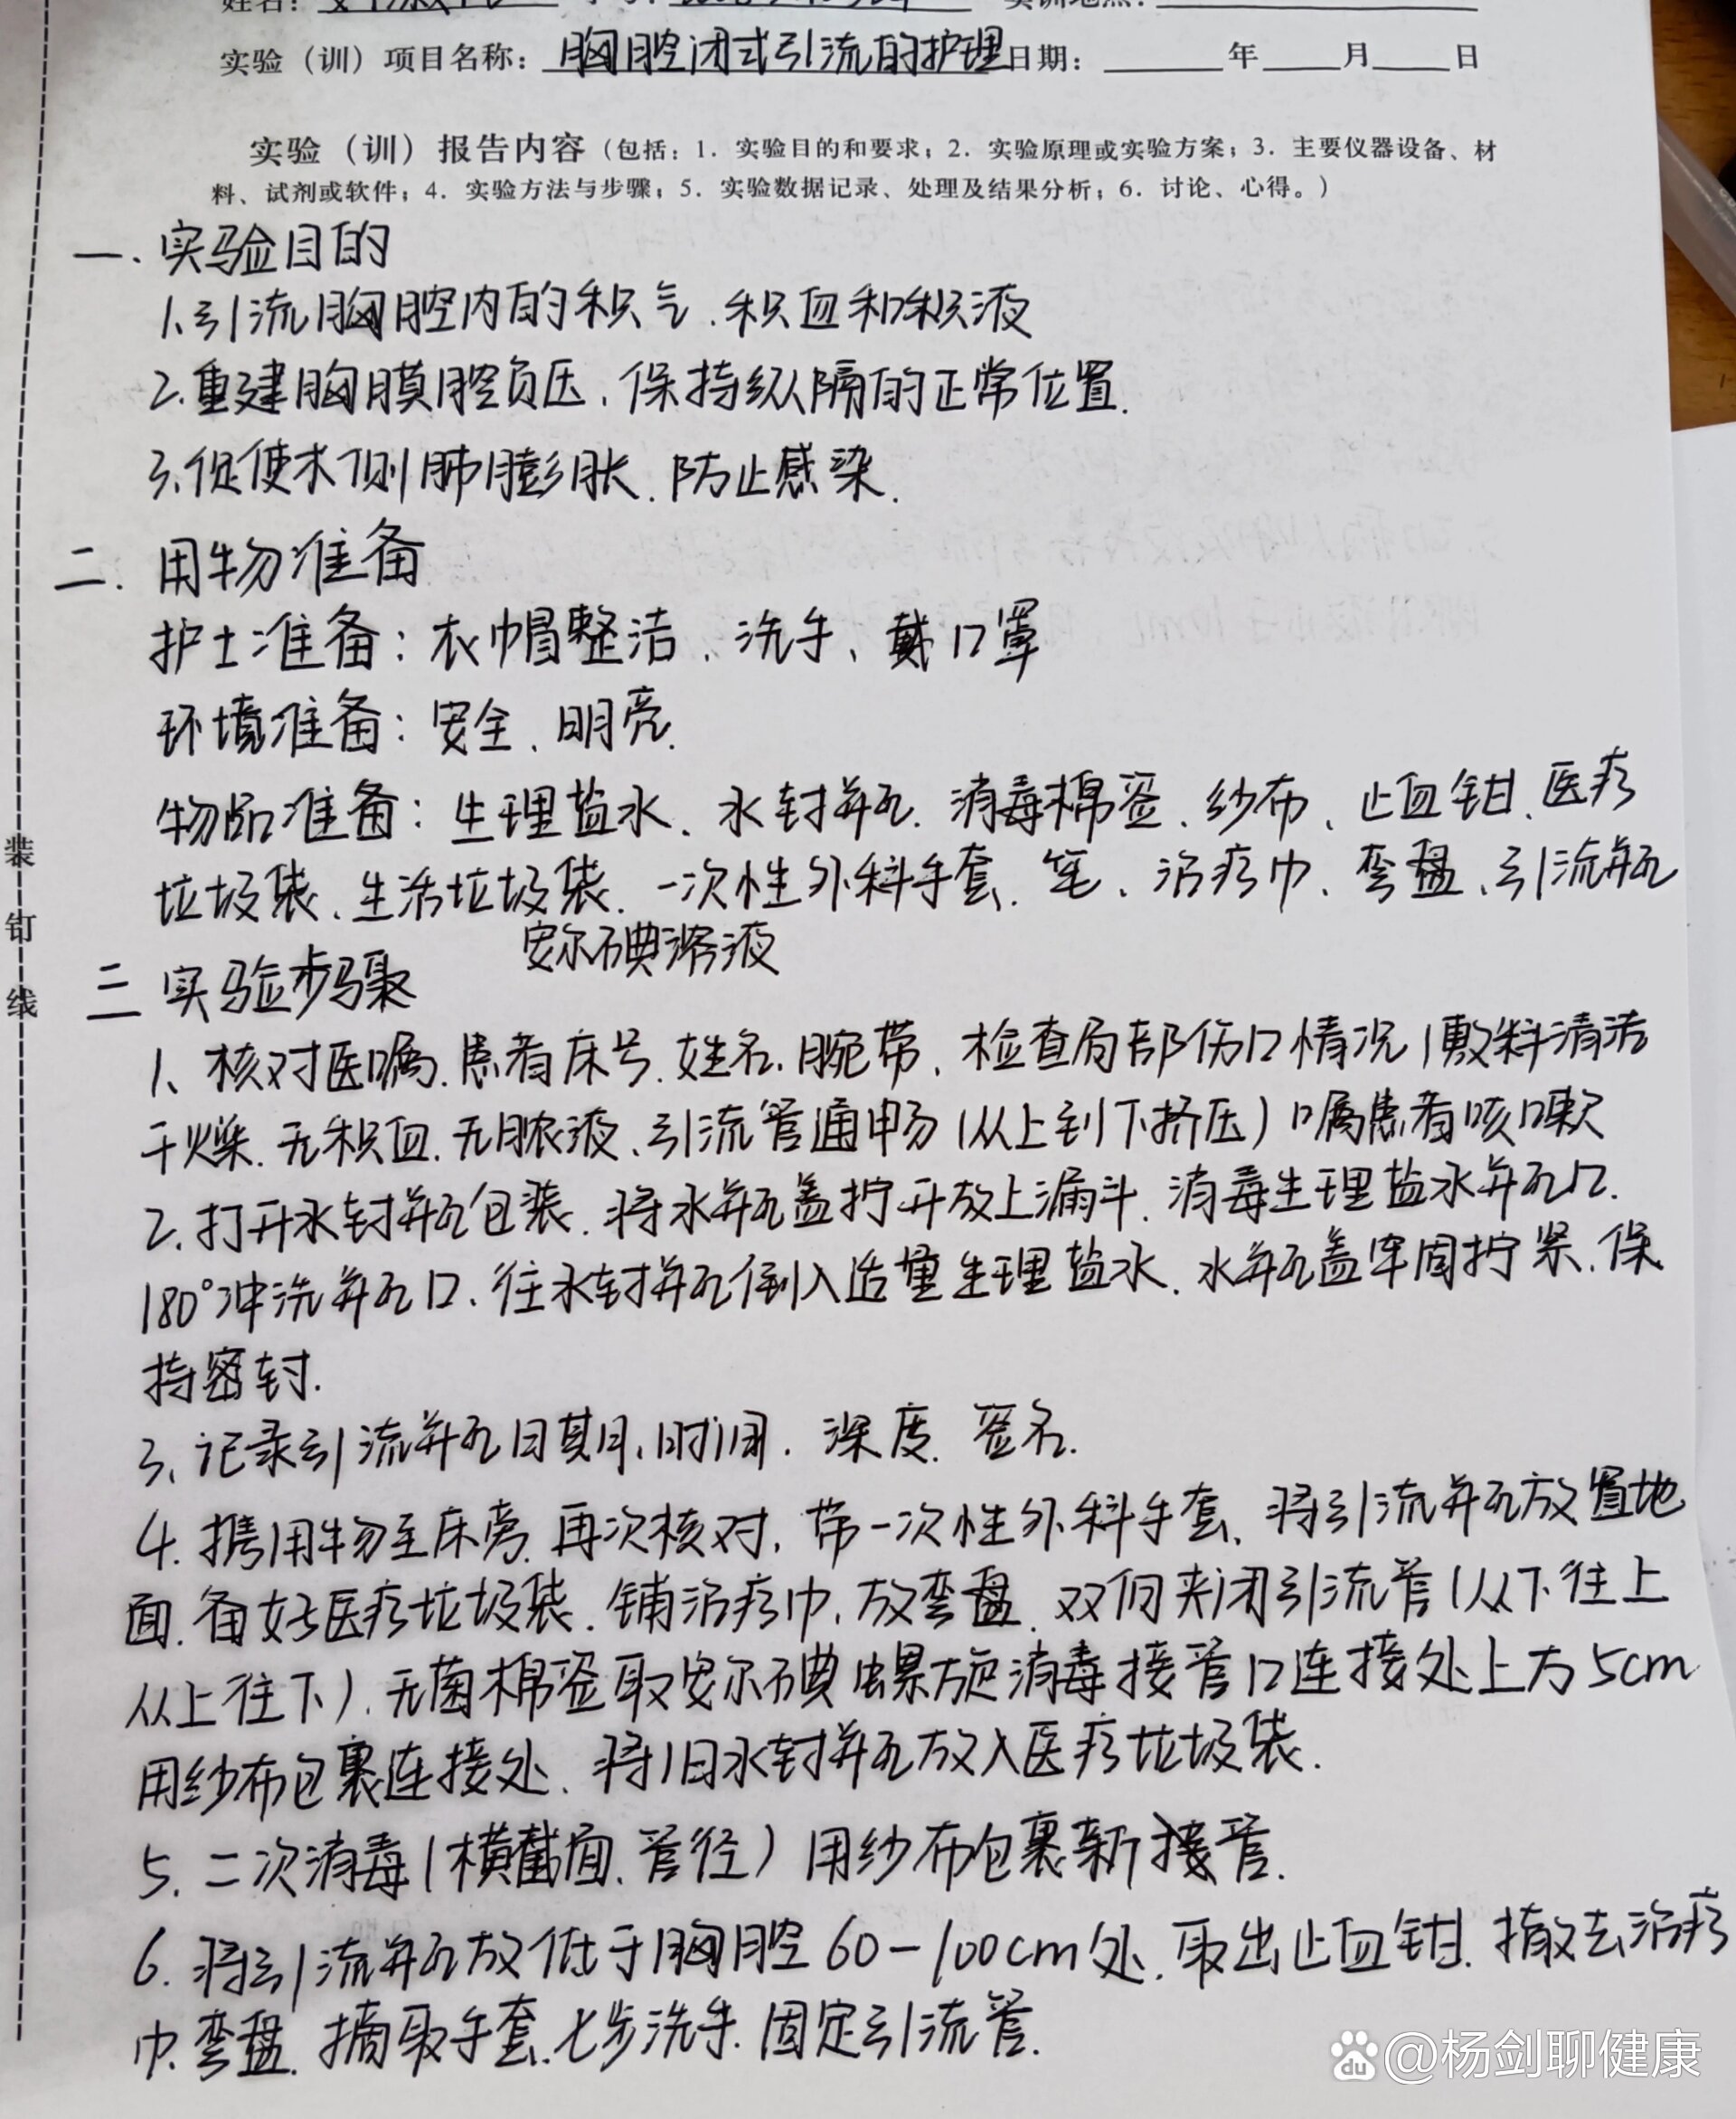 姓名：
实训地点：
实验（训）项目名称：胸腔闭式引流的护理日期：年 月 日
实验（训）报告内容（包括：1. 实验目的和要求；2. 实验原理或实验方案；3. 主要仪器设备、材
料、试剂或软件；4. 实验方法与步骤；5. 实验数据记录、处理及结果分析；6. 讨论、心得。）
一、实验目的
1、引流胸腔内的积气、积血和积液
2、重建胸膜腔负压、保持纵隔的正常位置.
3、促使术侧肺膨胀、防止感染.
二、用物准备
护士准备：衣帽整洁、洗手、戴口罩
环境准备：安全、明亮.
物品准备：生理盐水、水封瓶、消毒棉签、纱布、止血钳、医疗
垃圾袋、生活垃圾袋、一次性外科手套、笔、治疗巾、弯盘、引流瓶
安尔碘溶液
三 实验步骤
1、核对医嘱、患者床号、姓名、腕带、检查局部伤口情况（敷料清洁
干燥、无积血、无脓液、引流管通畅（从上到下挤压）嘱患者咳嗽
2、打开水封瓶包装、将水瓶盖拧开放上漏斗、消毒生理盐水瓶口、
180°冲洗瓶口、往水封瓶倒入适量生理盐水、水瓶盖牢固拧紧、保
持密封.
3、记录引流瓶日期、时间、深度、签名.
4、携用物至床旁、再次核对、带一次性外科手套、将引流瓶放置地
面、备好医疗垃圾袋、铺治疗巾、放弯盘、双向夹闭引流管（从下往上
从上往下）、无菌棉签取安尔碘螺旋消毒接管口连接处上方5cm
用纱布包裹连接处、将旧水封瓶放入医疗垃圾袋.
5、二次消毒（横截面、管径）用纱布包裹新接管.
6、将引流瓶放低于胸腔60-100cm处、取出止血钳、撤去治疗
巾、弯盘、摘取手套、七步洗手、固定引流管.
装
订
线
du @杨剑聊健康